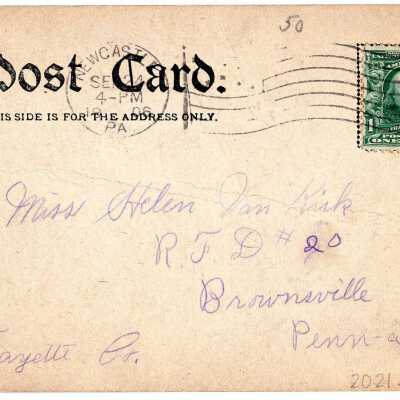 50
Post Card.
NEWCASTLE
SE
4-PM
PA.
THIS SIDE IS FOR THE ADDRESS ONLY.
ONE
Miss Helen Van Kirk
R. F. D # 20
Brownsville
Penn-a
Fayette Co.
2021